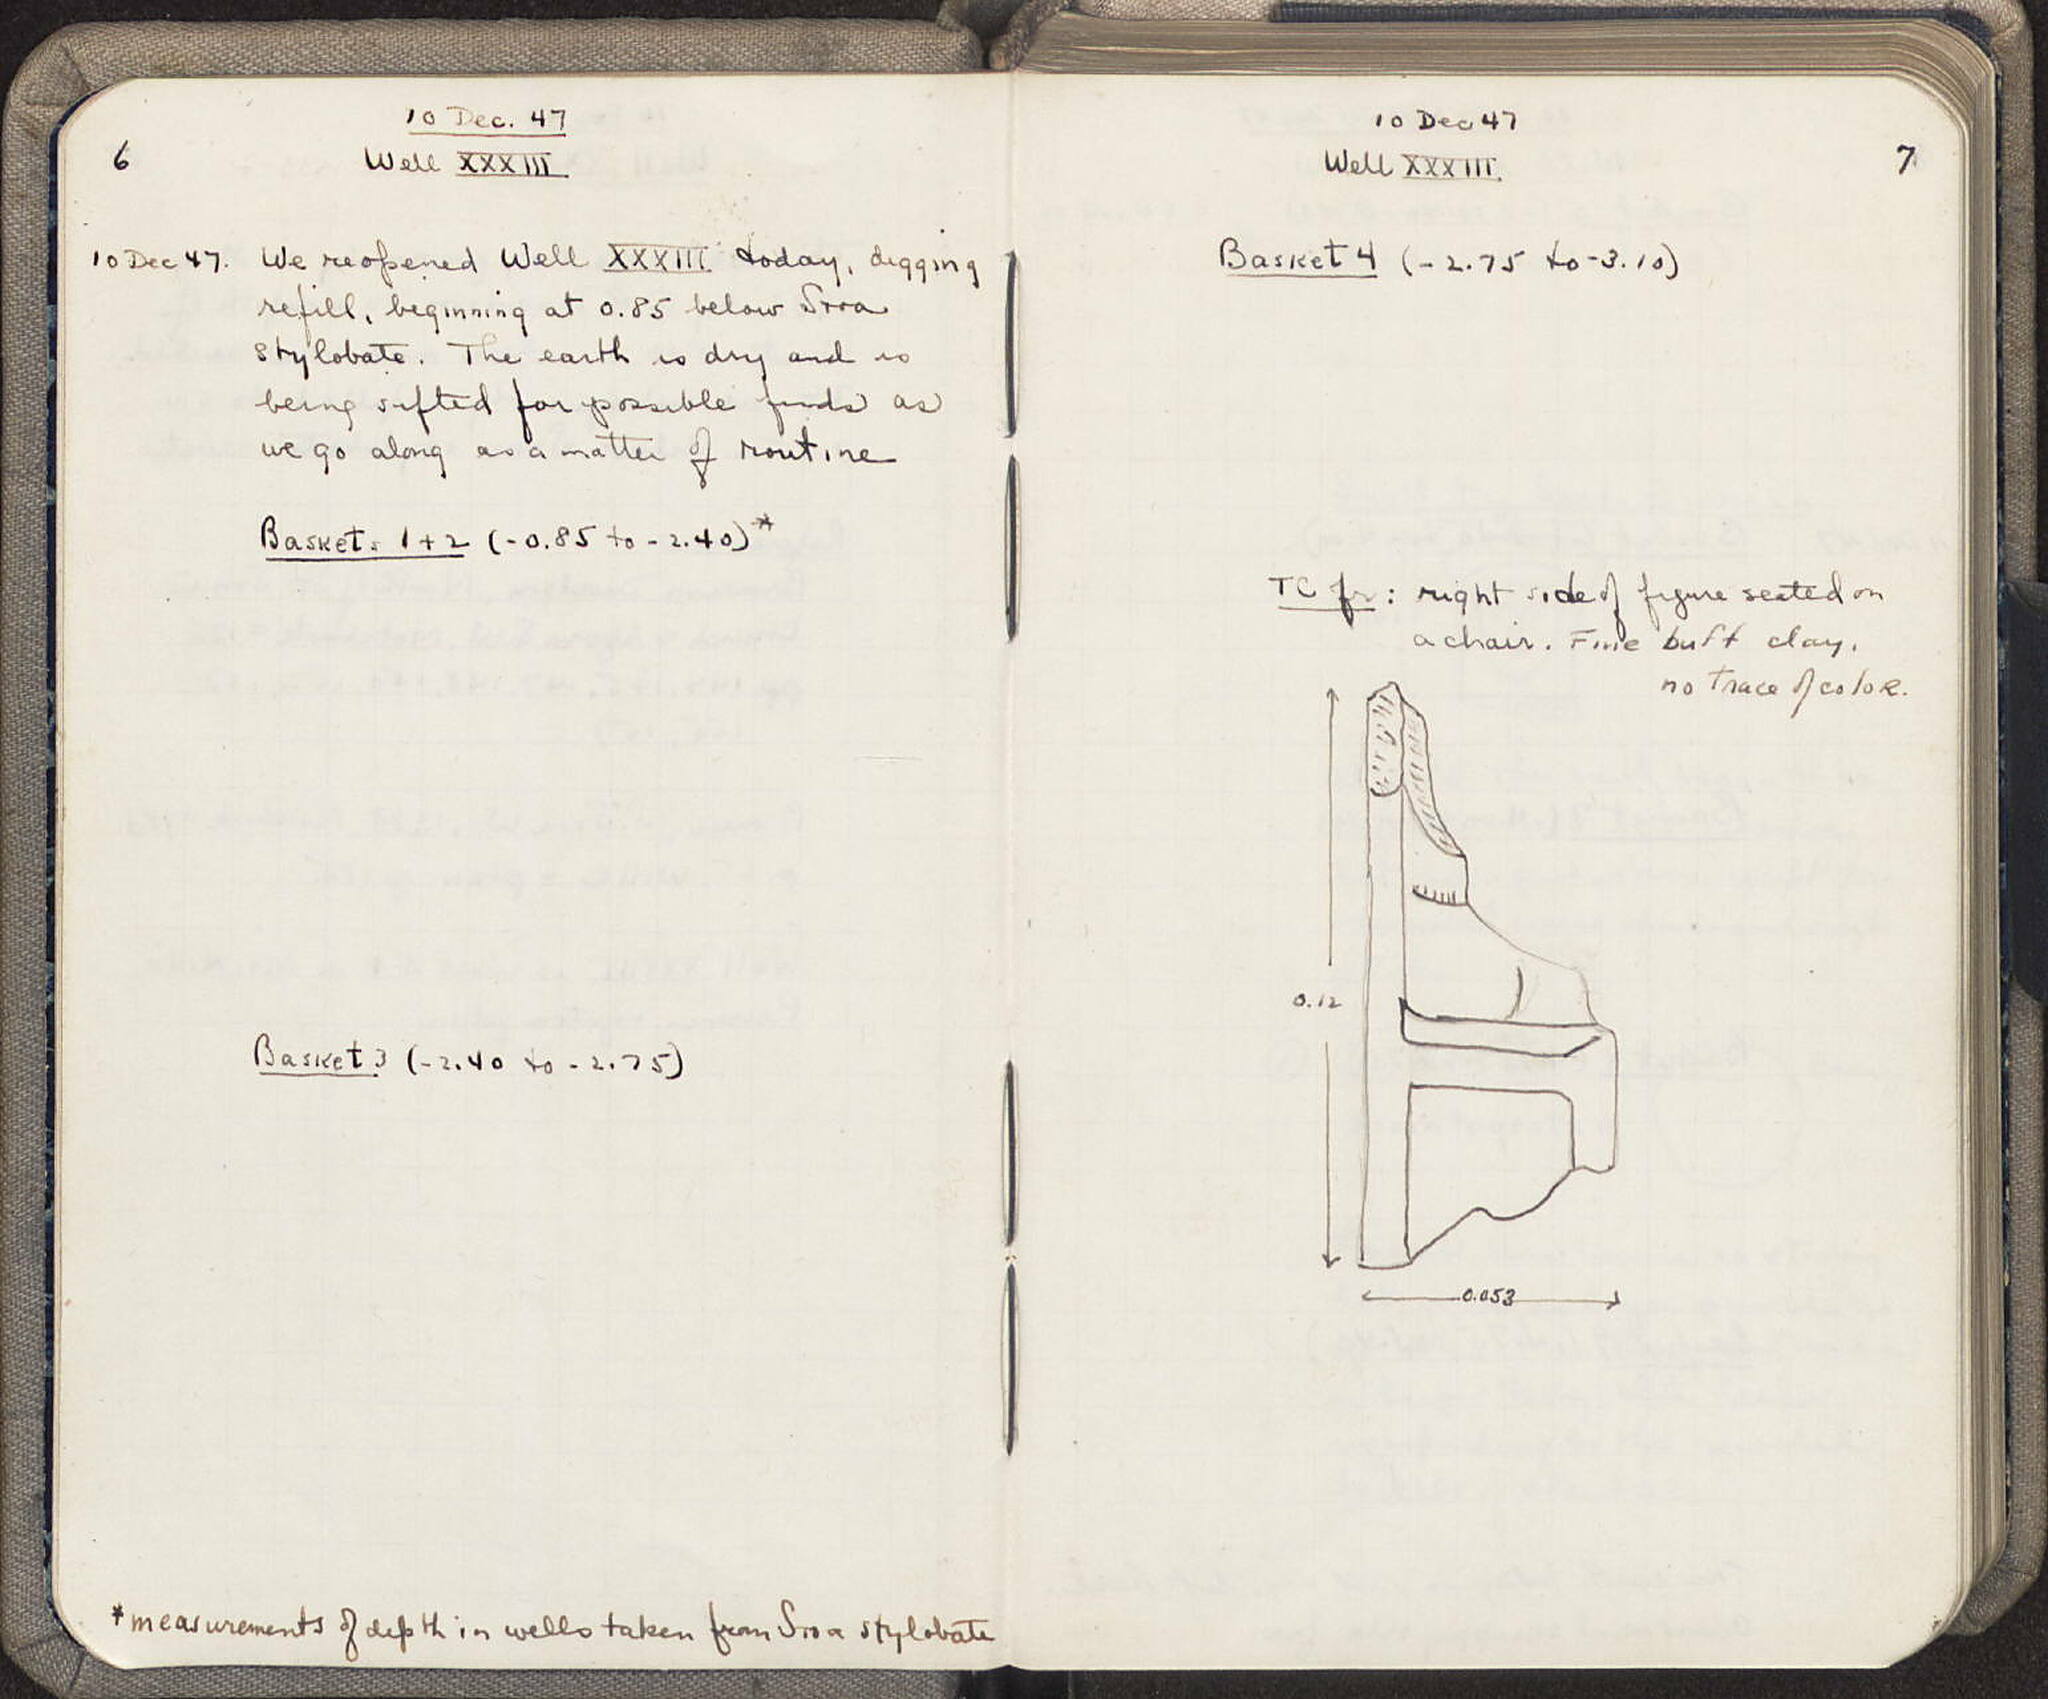 10 Dec. 47
6 Well XXXIII
10 Dec 47. We reopened Well XXXIII today, digging
refill, beginning at 0.85 below Stoa
stylobate. The earth is dry and is
being sifted for possible finds as
we go along as a matter of routine
Baskets 1+2 (-0.85 to -2.40)*
Basket 3 (-2.40 to -2.75)
*measurements of depth in wells taken from Stoa stylobate
10 Dec 47
Well XXXIII 7
Basket 4 (-2.75 to -3.10)
TC fr: right side of figure seated on
a chair. Fine buff clay.
no trace of color.
0.12
0.053